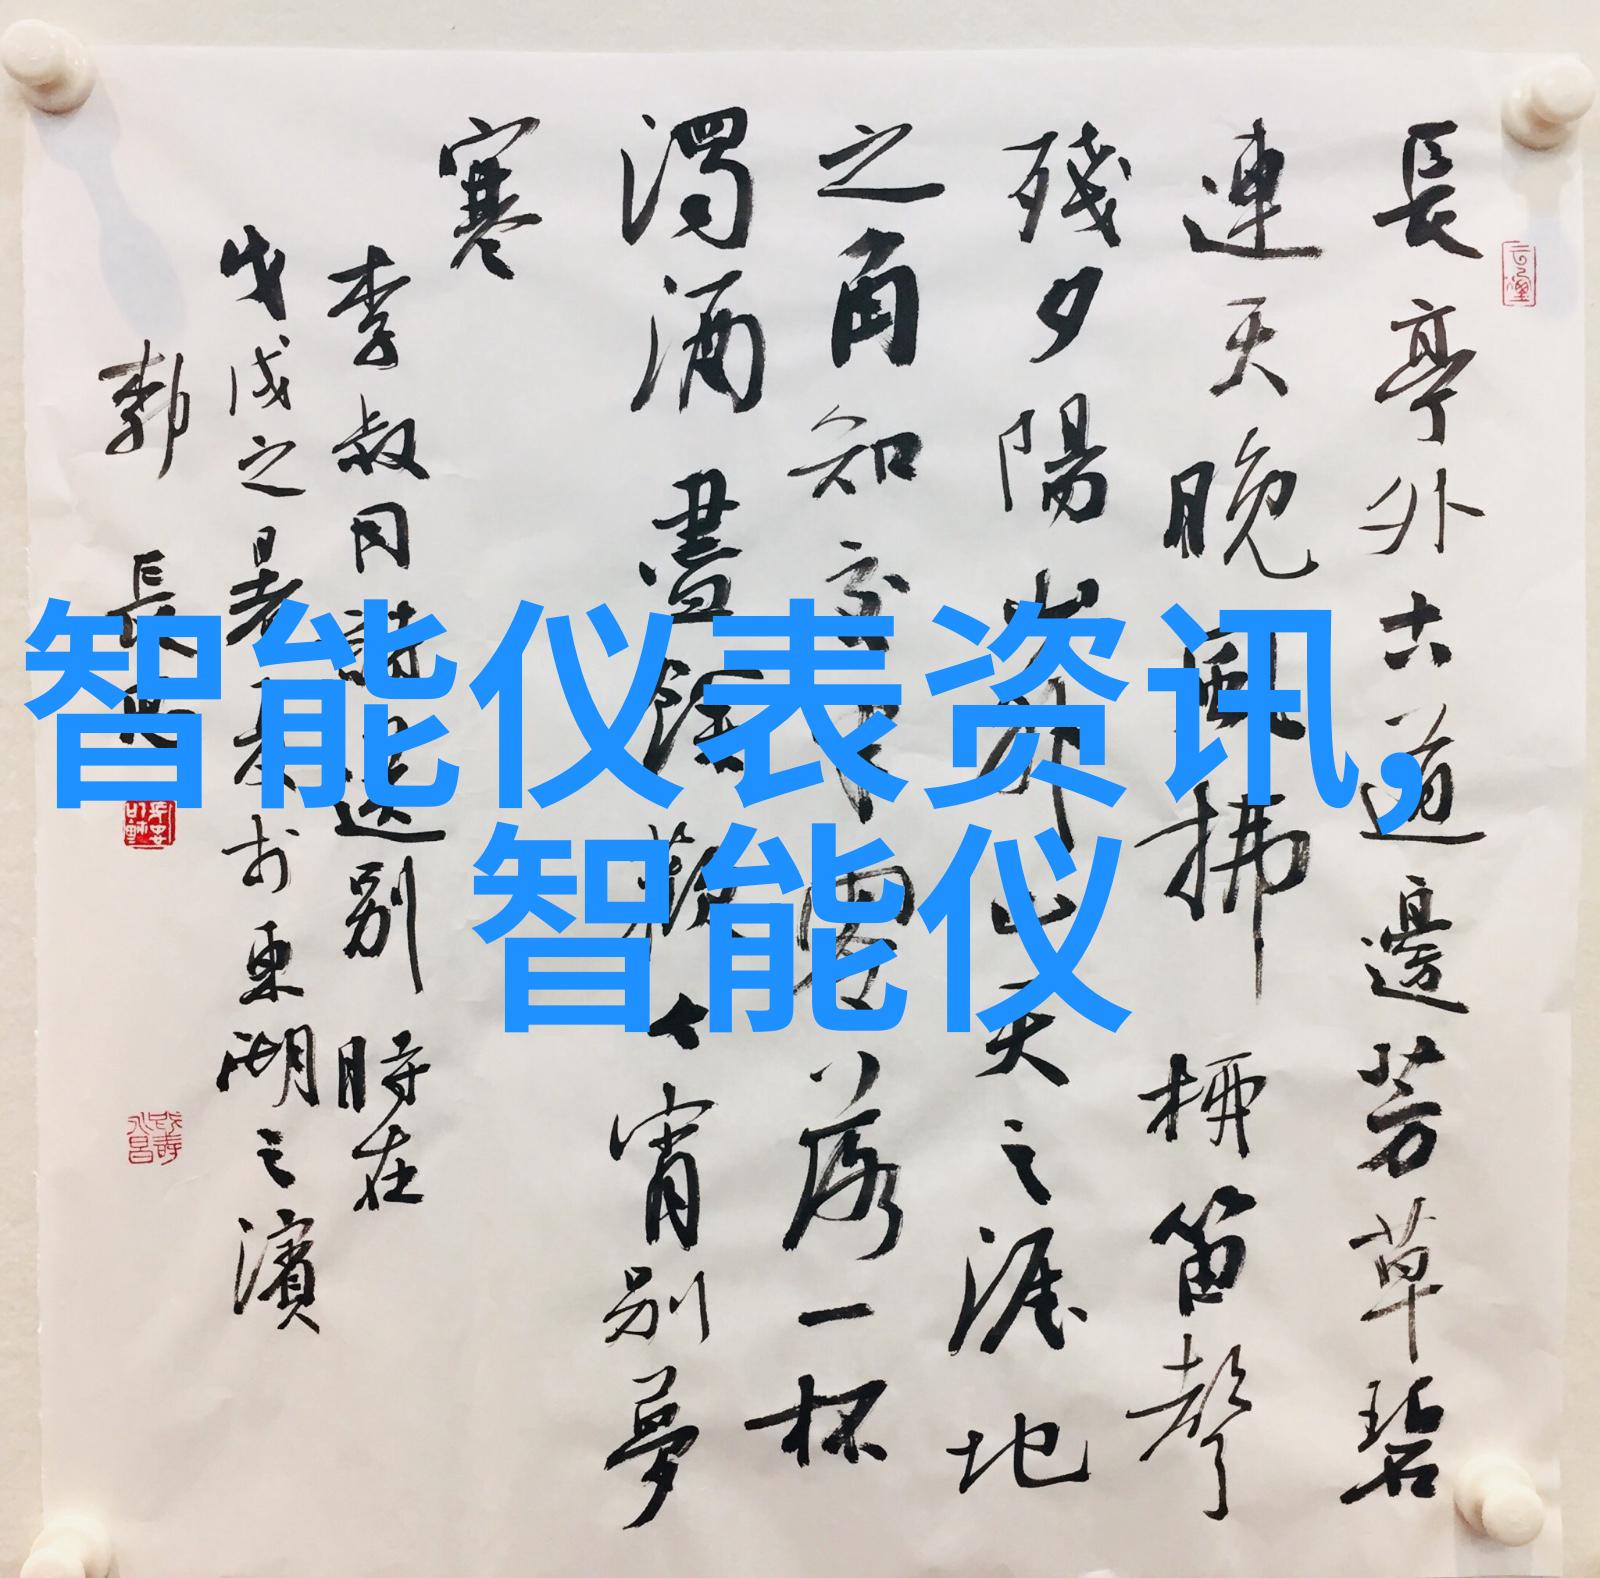 長亭外古道邊芳草碧
連天晚風拂柳笛聲
殘夕陽山外山天之涯地
之角知交半零落一杯
濁酒盡餘歡今宵別夢
寒
李叔同詩送別 時在
戊戌之暑月於東湖之濱
郭長
智能仪表资讯,
智能仪